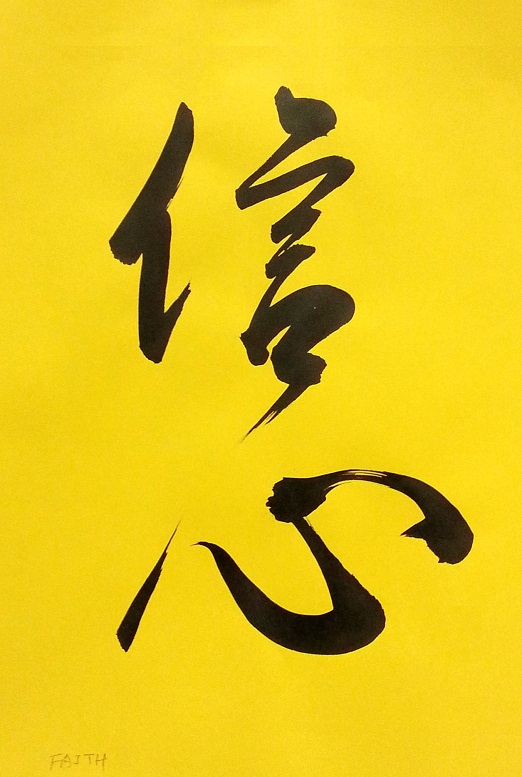 信
心
FAITH